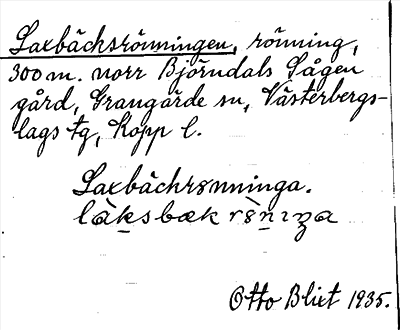 Laxbäcksrönningen, rönning,
300 m. norr Björndals Sågen
gård, Grangärde sn, Västerbergs-
lags tg, Kopp l.
Laxbäckrønninga.
Otto Blixt 1935.